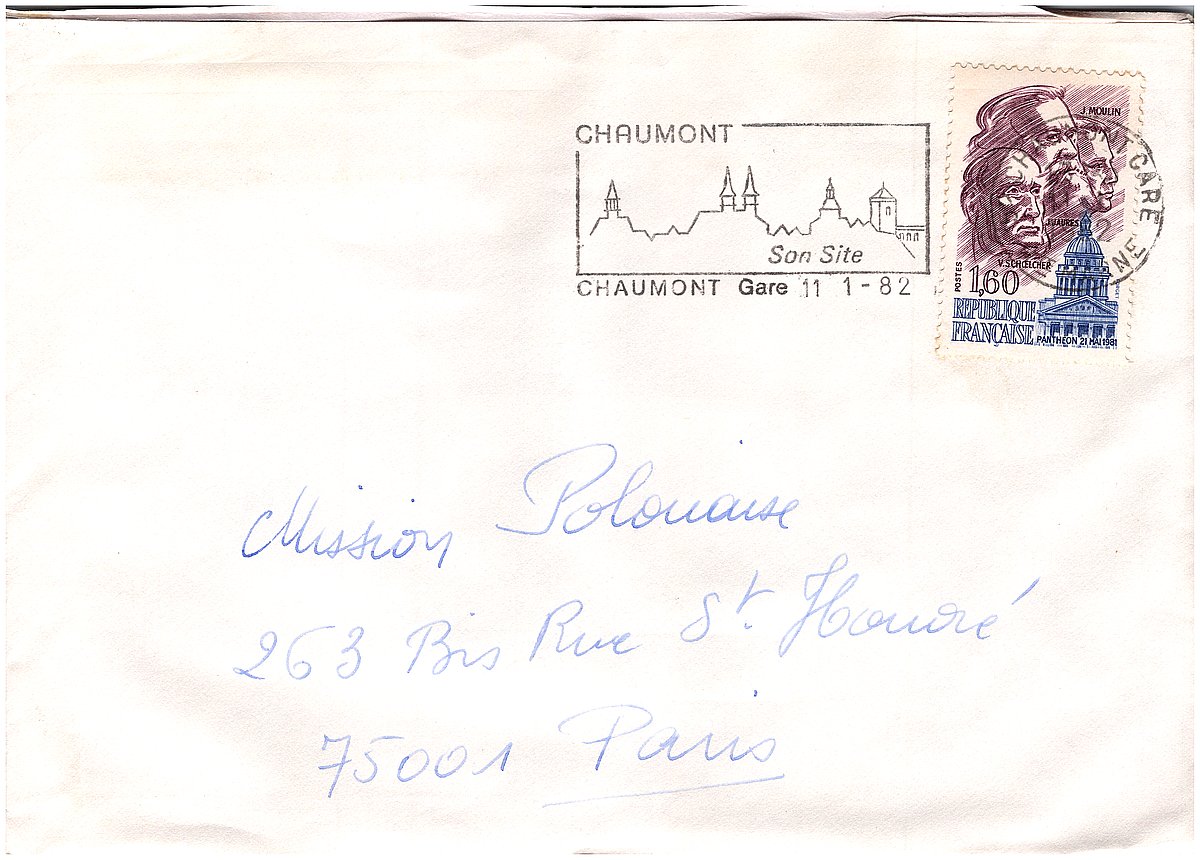 CHAUMONT
Son Site
CHAUMONT Gare 11 1-82
J. MOULIN
J. JAURES
V. SCHŒLCHER
POSTES
1,60
REPUBLIQUE
FRANÇAISE
PANTHEON 21 MAI 1981
Mission Polonaise
263 Bis Rue St. Honoré
75001 Paris